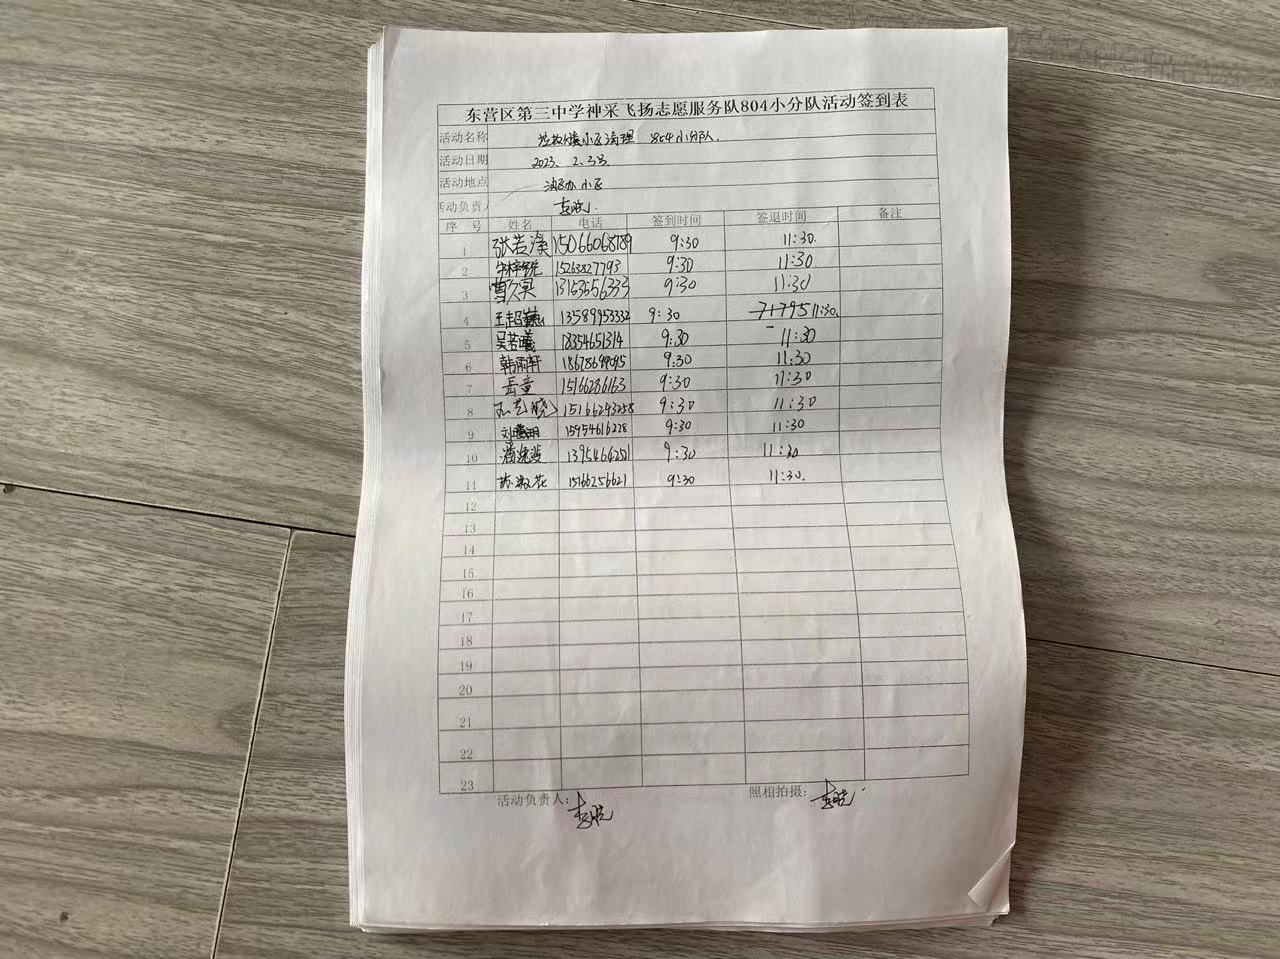 东营区第三中学神采飞扬志愿服务队804小分队活动签到表
活动名称 小区清理 804小分队.
活动日期 2023. 2. 3号
活动地点 小区
活动负责人 李晓
序 号 姓名 电话 签到时间 签退时间 备注
1 张若溪 15066068789 9:30 11:30.
2 15263827793 9:30 11:30
3 13153556333 9:30 11:30
4 王超巍 13589953332 9:30 11:30.
5 吴若曦 18354651314 9:30 11:30
6 韩雨轩 9:30 11:30
7 岳童 15166286163 9:30 11:30
8 15166243258 9:30 11:30
9 15954616228 9:30 11:30
10 9:30 11:30
11 苏淑花 15166256621 9:30 11:30.
12
13
14
15
16
17
18
19
20
21
22
23
活动负责人: 李晓 照相拍摄: 李晓